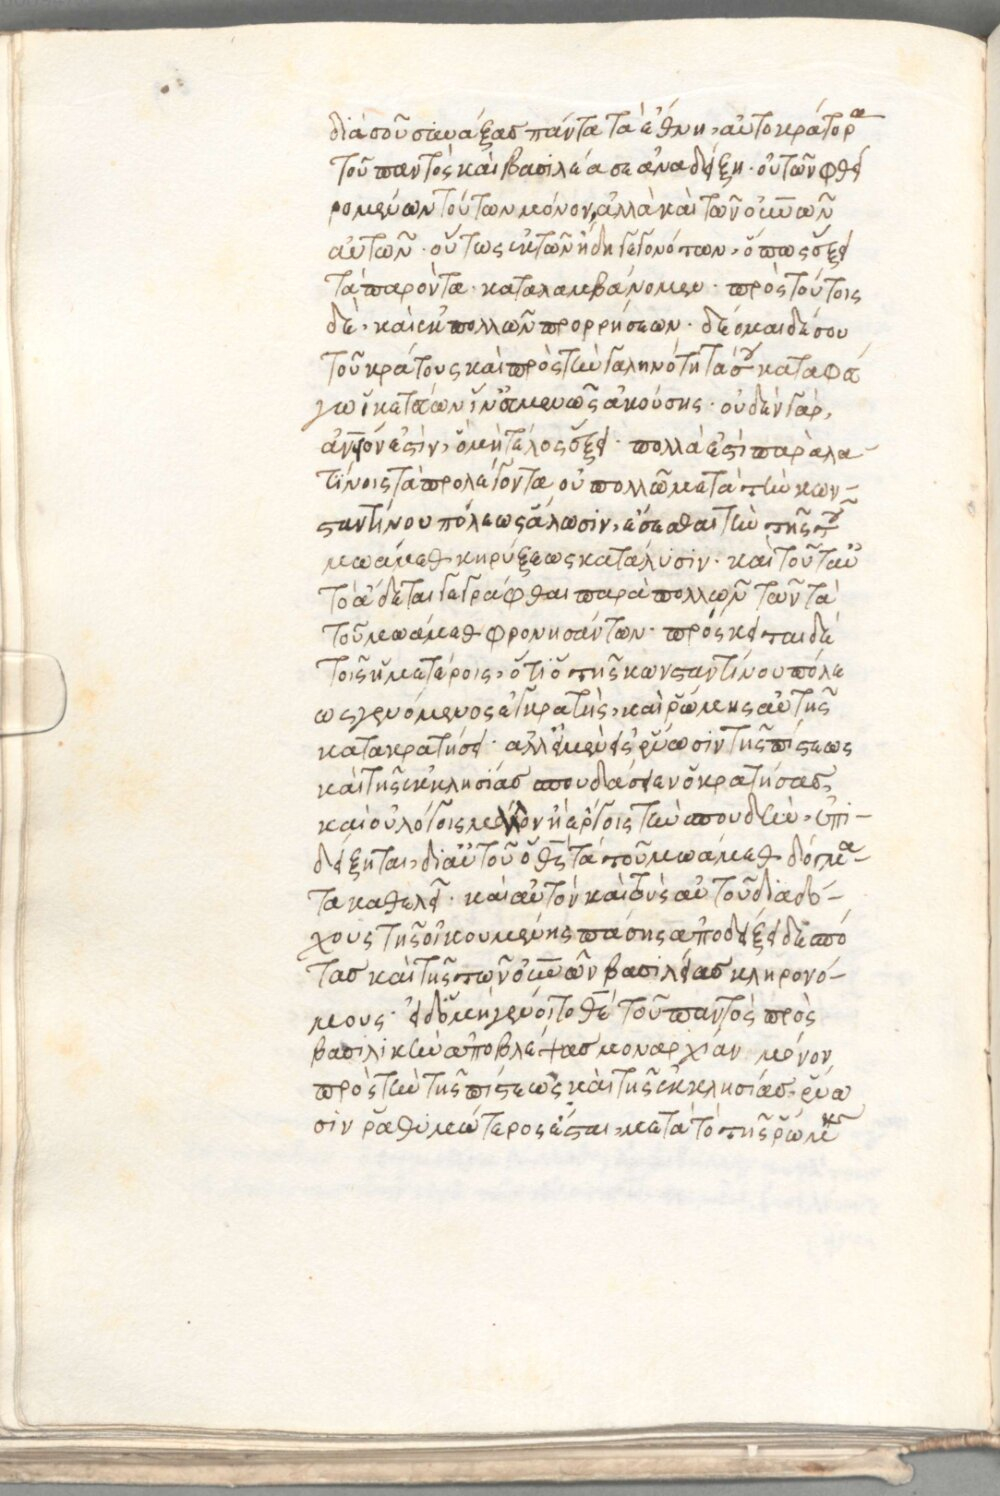 διὰ σοῦ συνάξας πάντα τὰ ἔθνη, αὐτοκράτορα
τοῦ παντὸς καὶ βασιλέα σε ἀναδείξη · οὐ τῶν φθει
ρομένων τούτων μόνον, ἀλλὰ καὶ τῶν οὐνῶν
αὐτῶν · οὕτως ἐκ τῶν ἤδη γεγονότων, ὅπως ἕξει
τὰ παρόντα · καταλαμβάνομεν · πρὸς τούτοις
δὲ, καὶ ἐκ πολλῶν προρρήσεων · δέομαι δέ σου
τοῦ κράτους καὶ πρὸς τὴν γαληνότητά σου καταφεύ
γω ἱκετεύων ἵν' εὐμενῶς ἀκούσης · οὐδὲν γὰρ,
ἀνόνητόν ἐστιν, ὃ μὴ τέλος ἕξει · πολλά ἐστι παρὰ λα
τίνοις τὰ προλέγοντα οὐ πολλῶ μετὰ τὴν κων-
σταντίνου πόλεως ἅλωσιν, ἔσεσθαι τὴν τῆς τοῦ
μωάμεθ κηρύξεως κατάλυσιν · καὶ τοῦτ' αὐ
τὸ ἄδεται γεγράφθαι παρὰ πολλῶν τῶν τὰ
τοῦ μωάμεθ φρονησάντων · πρόσκειται δὲ
τοῖς ἡμετέροις, ὅτι ὁ τῆς κωνσταντίνου πόλε
ως γενόμενος ἐγκρατὴς, καὶ ῥώμης αὐτῆς
κατακρατήσει · ἀλλ' εἰ μὲν εἰς ἕνωσιν τῆς πίστεως
καὶ τῆς ἐκκλησίας σπουδάσειεν ὁ κρατήσας,
καὶ οὐ λόγοις μᾶλλον ἢ ἔργοις τὴν σπουδὴν, ἐπι-
δείξηται, δι' αὐτοῦ ὁ θς τὰ τοῦ μωάμεθ δόγμα-
τα καθελεῖ · καὶ αὐτὸν καὶ τοὺς αὐτοῦ διαδό-
χους τῆς οἰκουμένης πάσης ἀποδείξει δεσπό
τας καὶ τῆς τῶν οὐνῶν βασιλείας κληρονό-
μους · εἰ δ' ὃ μὴ γένοιτο θεὲ τοῦ παντὸς πρὸς
βασιλικὴν ἀποβλέψας μοναρχίαν μόνον
πρὸς τὴν τῆς πίστεως καὶ τῆς ἐκκλησίας, ἕνω
σιν ῥαθυμώτερος ἔσται, μετὰ τὸ τῆς ῥώμης